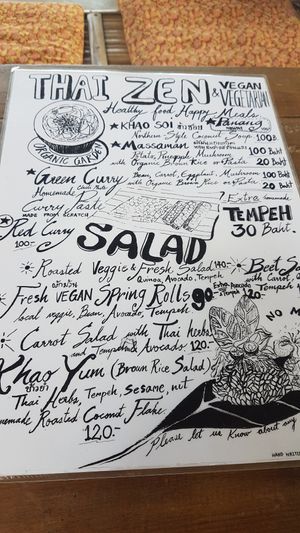 THAI ZEN & VEGAN VEGETARIAN
Healthy food Happy Meals
ORGANIC GARDEN
★ KHAO SOI ข้าวซอย
Northern Style Coconut Soup 100฿
★ Panang
★ Massaman
Potato, Pineapple, Mushroom 100 Baht
with Organic Brown Rice or Pasta 20 Baht
★ Green Curry
Bean, Carrot, Eggplant, Mushroom 100 Baht
with Organic Brown Rice or Pasta 20 Baht
Homemade
Curry Paste
MADE FROM SCRATCH
★ Red Curry
100.-
? Extra homemade
TEMPEH
30 Baht.
SALAD
Roasted Veggie & Fresh Salad 140.-
Quinoa, Avocado, Tempeh
Beet Sa
with Carrot,
Tempeh
120.-
Fresh VEGAN Spring Rolls 90.-
local veggie, Bean, Avocado, Tempeh
Extra Avocado
Carrot Salad with Thai herbs
and Tempeh Avocado 120.-
NO M
Khao Yum (Brown Rice Salad)
ข้าวยำ
Thai Herbs, Tempeh, Sesame, nut
omemade Roasted Coconut Flake.
120.-
Please let us know about any
HAND WRITTE